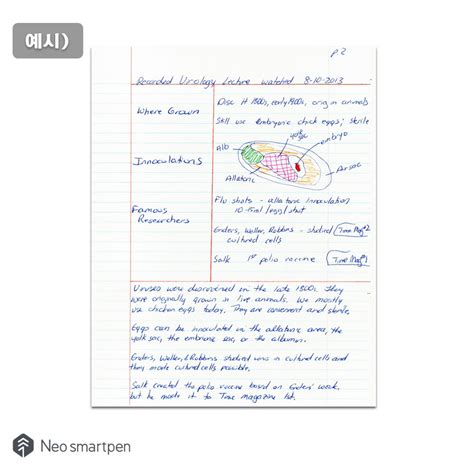 예시)
p.2
Recorded Virology Lecture watched 8-10-2013
Where Grown
Disc # 1800s, early 1900s, origin animals
Still use embryonic chick eggs; sterile
Innoculations
Alb
yolk sac
embryo
Air sac
Allatoic
Famous
Researchers
Flu shots - allatoic innoculation
10-15ml/egg/shot
Enders, Weller, Robbins - shared Time Mag #2
cultured cells
Salk 1st polio vaccine Time Mag #1
Viruses were discovered in the late 1800s. They
were originally grown in live animals. We mostly
use chicken eggs today. They are convenient and sterile.
Eggs can be innoculated in the allatoic area, the
yolk sac, the embryonic sac, or the albumin.
Enders, Weller, & Robbins studied virus in cultured cells and
they made cultured cells possible.
Salk created the polio vaccine based on Enders' work,
but he made it to Time magazine 1st.
Neo smartpen